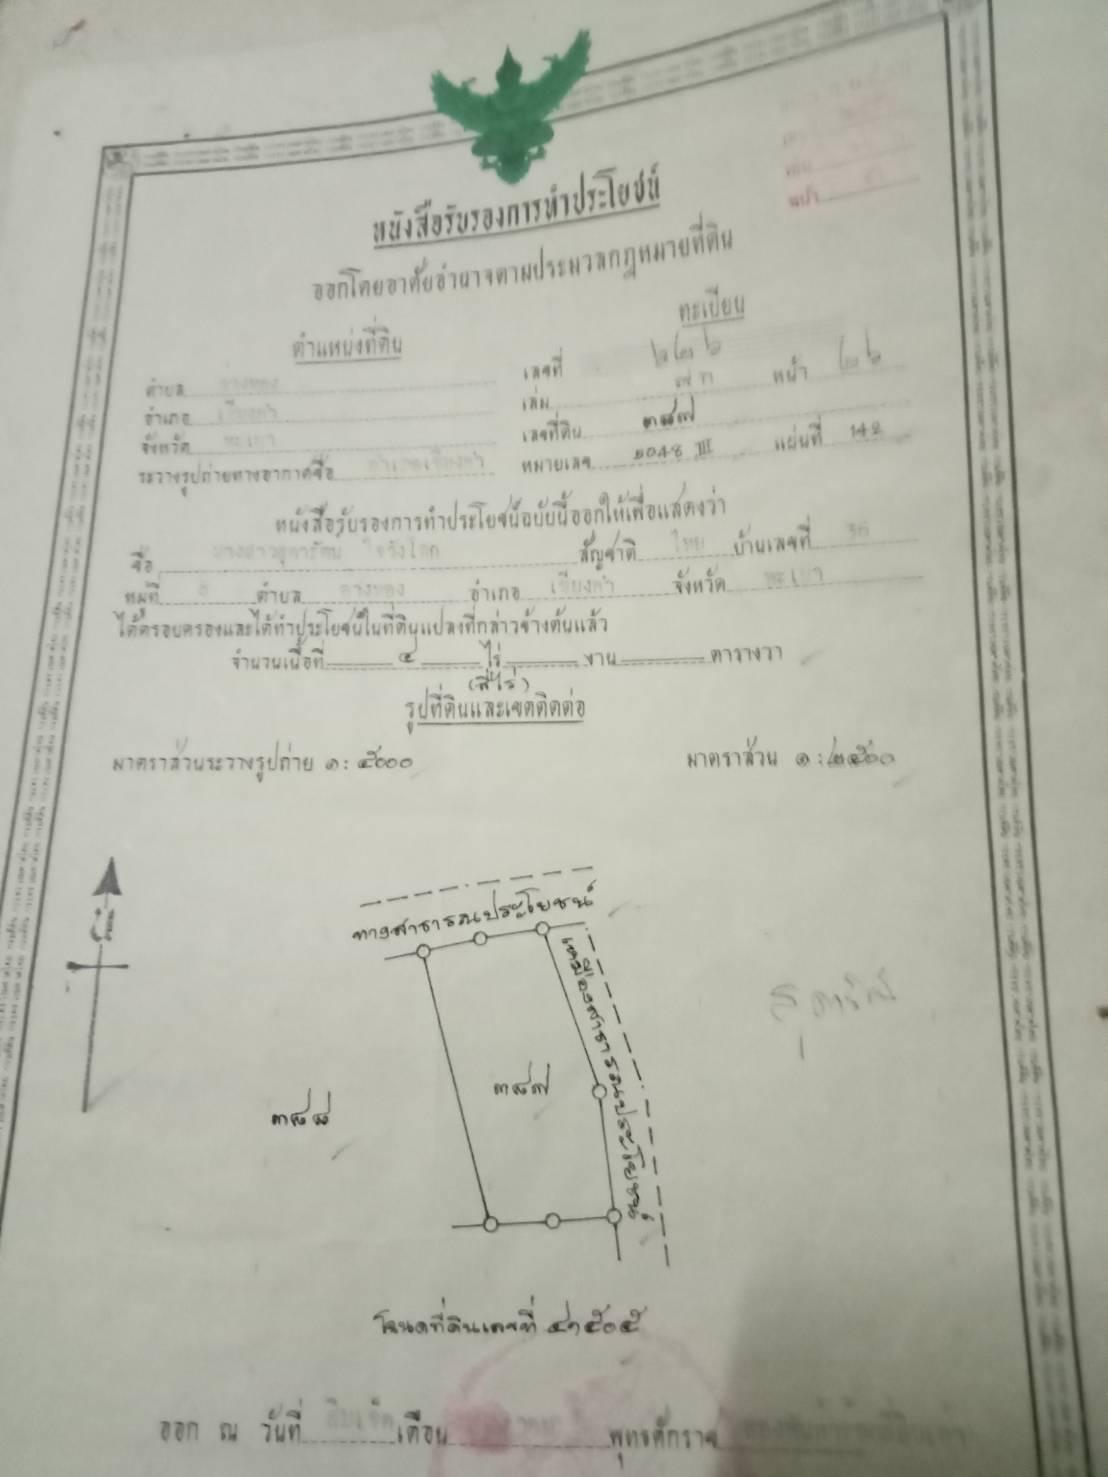 หน้า
หนังสือรับรองการทำประโยชน์
ออกโดยอาศัยอำนาจตามประมวลกฎหมายที่ดิน
ตำแหน่งที่ดิน
ทะเบียน
ตำบล อ่างทอง
เลขที่ ๖๒๖
อำเภอ เชียงคำ
เล่ม หน้า ๒๖
จังหวัด พะเยา
เลขที่ดิน ๓๘๗
ระวางรูปถ่ายทางอากาศชื่อ อำเภอเชียงคำ
หมายเลข 5048 III แผ่นที่ 142
หนังสือรับรองการทำประโยชน์ฉบับนี้ออกให้เพื่อแสดงว่า
ชื่อ นางสาวสุดารัตน์ ใจวังโลก สัญชาติ ไทย บ้านเลขที่ 36
หมู่ที่ 8 ตำบล อ่างทอง อำเภอ เชียงคำ จังหวัด พะเยา
ได้ครอบครองและได้ทำประโยชน์ในที่ดินแปลงที่กล่าวข้างต้นแล้ว
จำนวนเนื้อที่ ๔ ไร่ งาน ตารางวา
(สี่ไร่)
รูปที่ดินและเขตติดต่อ
มาตราส่วนระวางรูปถ่าย ๑ : ๕๐๐๐
มาตราส่วน ๑ : ๒๕๐๐
ทางสาธารณประโยชน์
เหมืองสาธารณประโยชน์
สุดารัตน์
๓๘๗
๓๘๘
โฉนดที่ดินเลขที่ ๔๑๕๐๕
ออก ณ วันที่ สิบเจ็ด เดือน พุทธศักราช